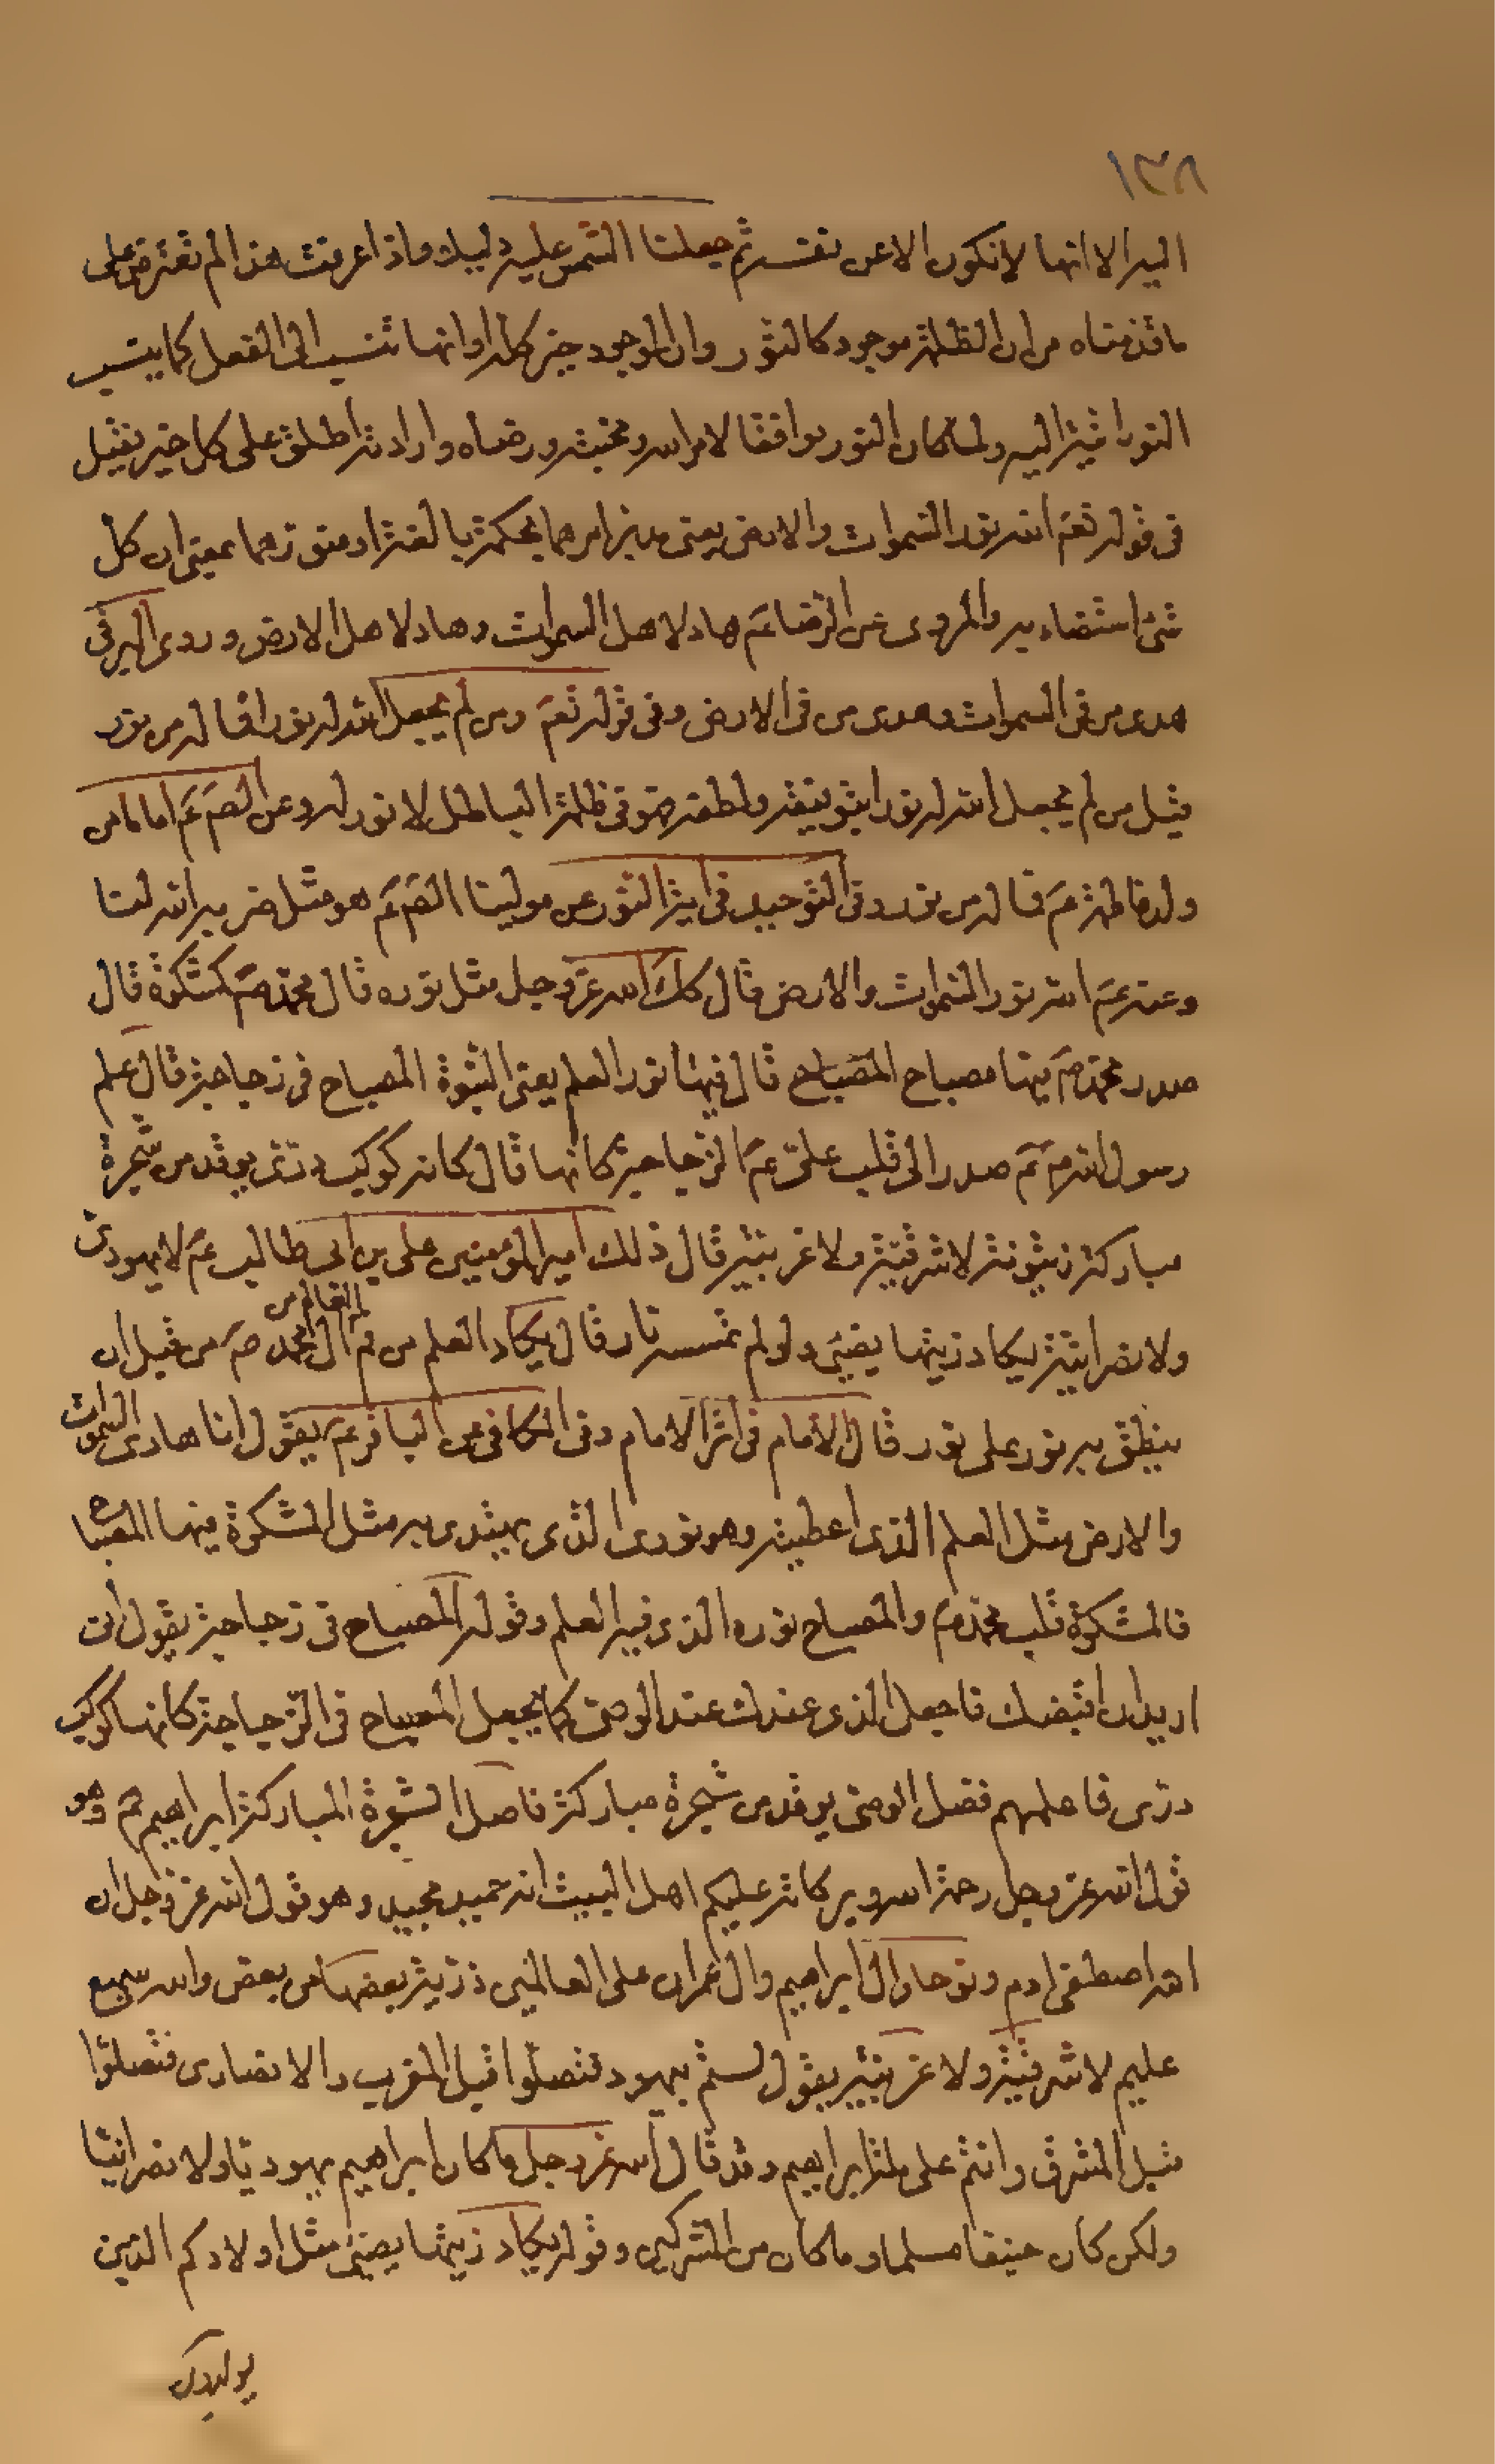 ١٣٨
اليه الا انها لاتكون الا عن نفسه ثم جعلنا الشمس عليه دليلا واذا عرفت هذا لم تعترض على
ماقدمناه من ان الظلمة موجود كالنور وان الوجود خير كله او انها تنسب الى الفعل كما ينسب
النور اليه ولما كان النور موافقا لامر الله ومحبته ورضاه وارادته اطلق على كل خير فقيل
فى قوله تعم الله نور السموات والارض يعنى مدبر امرهما بحكمة بالغة او منورهما بمعنى ان كل
شئ استضاء به والمروى عن الرضا عم هاد لاهل السموات وهاد لاهل الارض وروى البرقى
هدى من فى السموات وهدى من فى الارض وفى قوله تعم ومن لم يجعل الله له نورا فما له من نور
قيل من لم يجعل الله له نورا بتوفيقه ولطفه فهو فى ظلمة الباطل لا نور له وعن الصم عم اماما من
ولد فاطمة عم فما له من نور وفى التوحيد فى اية النور عن مولينا الصم عم هو مثل ضربه الله لنا
وعنه عم الله نور السموات والارض قال كذلك الله عز وجل مثل نوره قال محمد صم كمشكوة قال
صدر محمد صم فيها مصباح المصباح قال فيها نور العلم يعنى النبوة المصباح فى زجاجة قال علم
رسول الله صم صدر الى قلب على عم الزجاجة كانها قال كانه كوكب درى يوقد من شجرة
مباركة زيتونة لا شرقية ولا غربية قال ذلك امير المؤمنين على بن ابى طالب عم لا يهودى
ولا نصرانية يكاد زيتها يضئ ولو لم تمسسه نار قال يكاد العلم من فم العالم من ال محمد صم من قبل ان
ينطق به نور على نور قال الامام فى اثر الامام وفى الكافى عن الباقر عم يقول انا هادى السموات
والارض مثل العلم الذى اعطيته وهو نورى الذى يهتدى به مثل المشكوة فيها المصباح
فالمشكوة قلب محمد صم والمصباح نوره الذى فيه العلم وقوله المصباح فى زجاجة يقول انى
اريد ان اقبضك فاجعل الذى عندك عند الوصى كما يجعل المصباح فى الزجاجة كانها كوكب
درى فاعلمهم فضل الوصى يوقد من شجرة مباركة فاصل الشجرة المباركة ابراهيم عم وهو
قول الله عز وجل رحمة الله وبركاته عليكم اهل البيت انه حميد مجيد وهو قول الله عز وجل ان
الله اصطفى ادم ونوحا وال ابراهيم وال عمران على العالمين ذرية بعضها من بعض والله سميع
عليم لا شرقية ولا غربية يقول لستم بيهود فتصلوا قبل المغرب ولا نصارى فتصلوا
قبل المشرق وانتم على ملة ابراهيم وقد قال الله عز وجل ما كان ابراهيم يهوديا ولا نصرانيا
ولكن كان حنيفا مسلما وما كان من المشركين وقوله يكاد زيتها يضئ مثل اولادكم الذين
يولدون